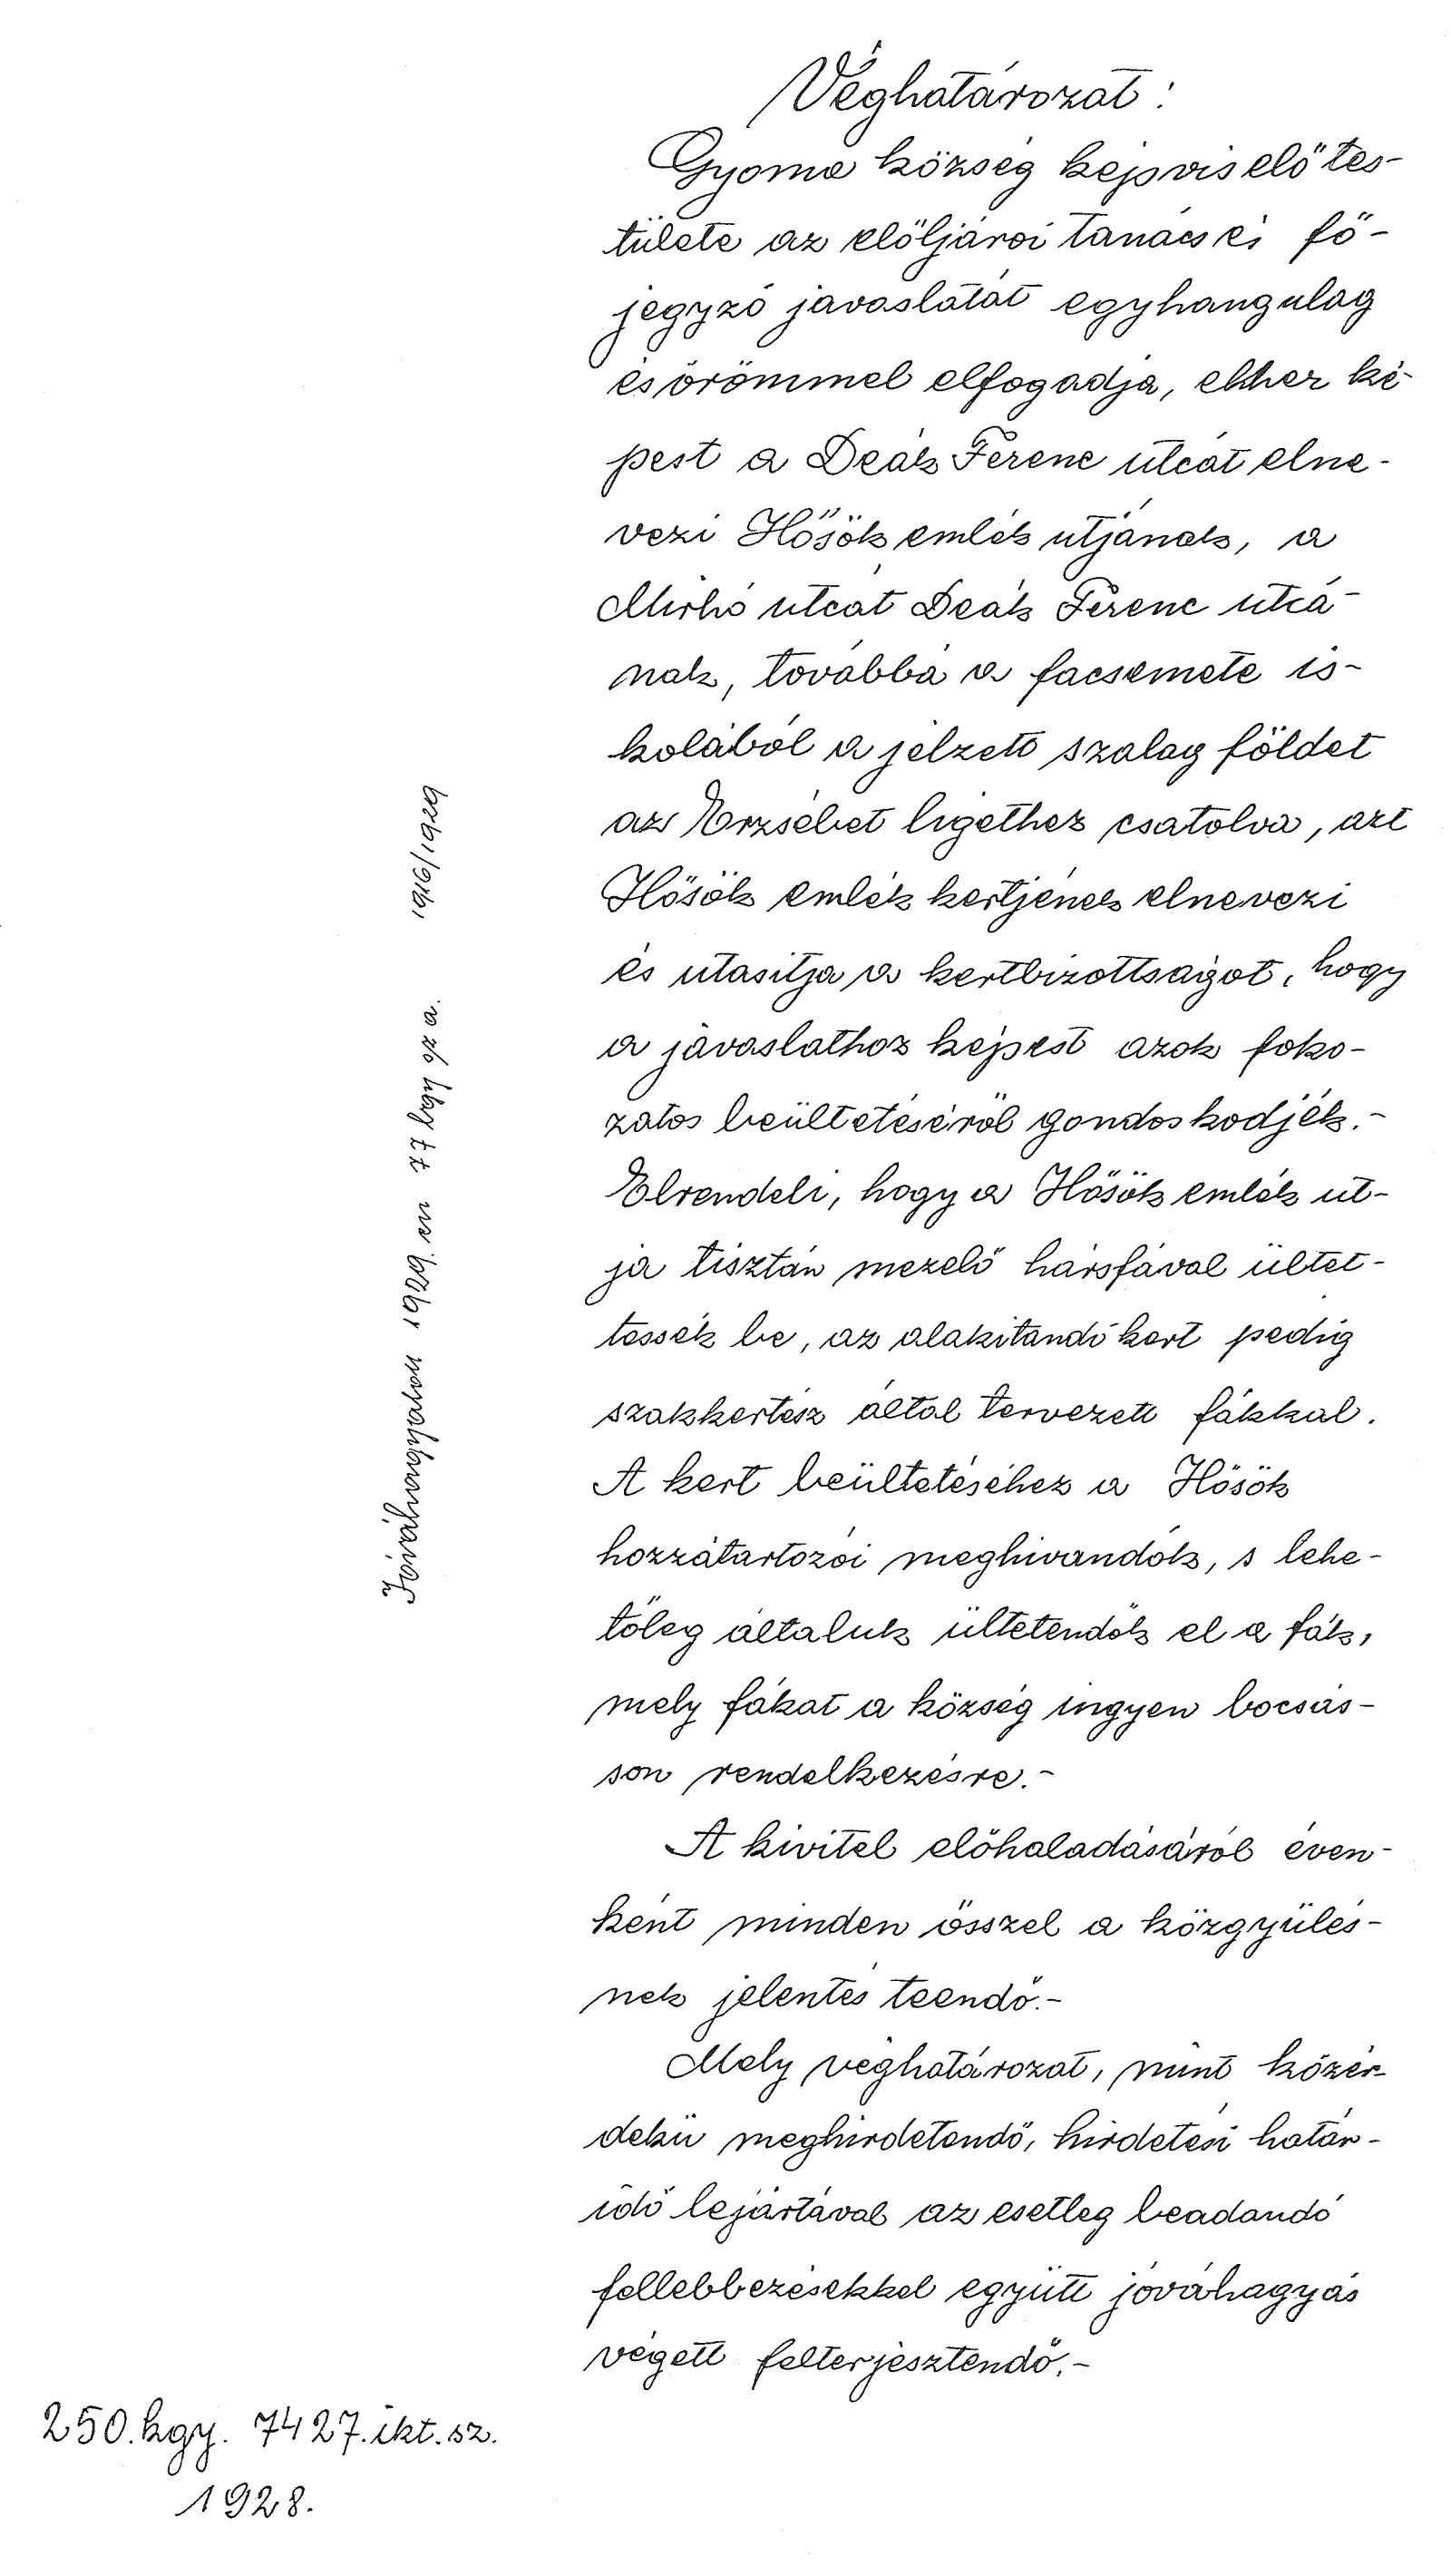 Véghatározat:
Gyoma község képviselőtes-
tülete az elöljárói tanács és fő-
jegyző javaslatát egyhangulag
és örömmel elfogadja, ehhez ké-
pest a Deák Ferenc utcát elne-
vezi Hősök emlék utjának, a
Mirhó utcát Deák Ferenc utcá-
nak, továbbá a facsemete is-
kolából a jelzett szalag földet
az Erzsébet ligethez csatolva, azt
Hősök emlék kertjének elnevezi
és utasitja a kertbizottságot, hogy
a javaslathoz képest azok foko-
zatos beültetéséről gondoskodjék.-
Elrendeli, hogy a Hősök emlék ut-
ja tisztán mezelő hársfával ültet-
tessék be, az alakitandó kert pedig
szakkertész által tervezett fákkal.
A kert beültetéséhez a Hősök
hozzátartozói meghivandók, s lehe-
tőleg általuk ültetendők el a fák,
mely fákat a község ingyen bocsás-
son rendelkezésre.-
A kivitel előhaladásáról éven-
ként minden ősszel a közgyülés-
nek jelentés teendő.-
Mely véghatározat, mint közér-
dekü meghirdetendő, hirdetési határ-
idő lejártával az esetleg beadandó
fellebbezésekkel együtt jóváhagyás
végett felterjesztendő.-
Jóváhagyatott 1929. en 77 kgy sz a. 1916/1929
250.kgy. 7427.ikt.sz.
1928.